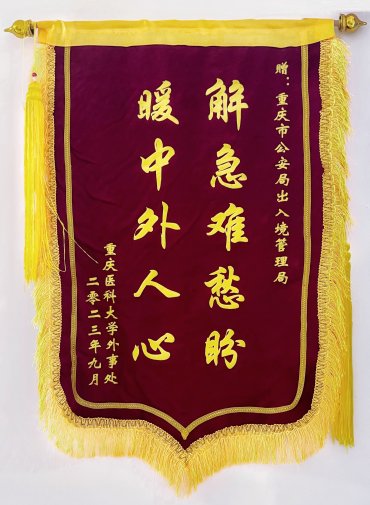 赠：重庆市公安局出入境管理局
解急难愁盼
暖中外人心
重庆医科大学外事处
二零二三年九月